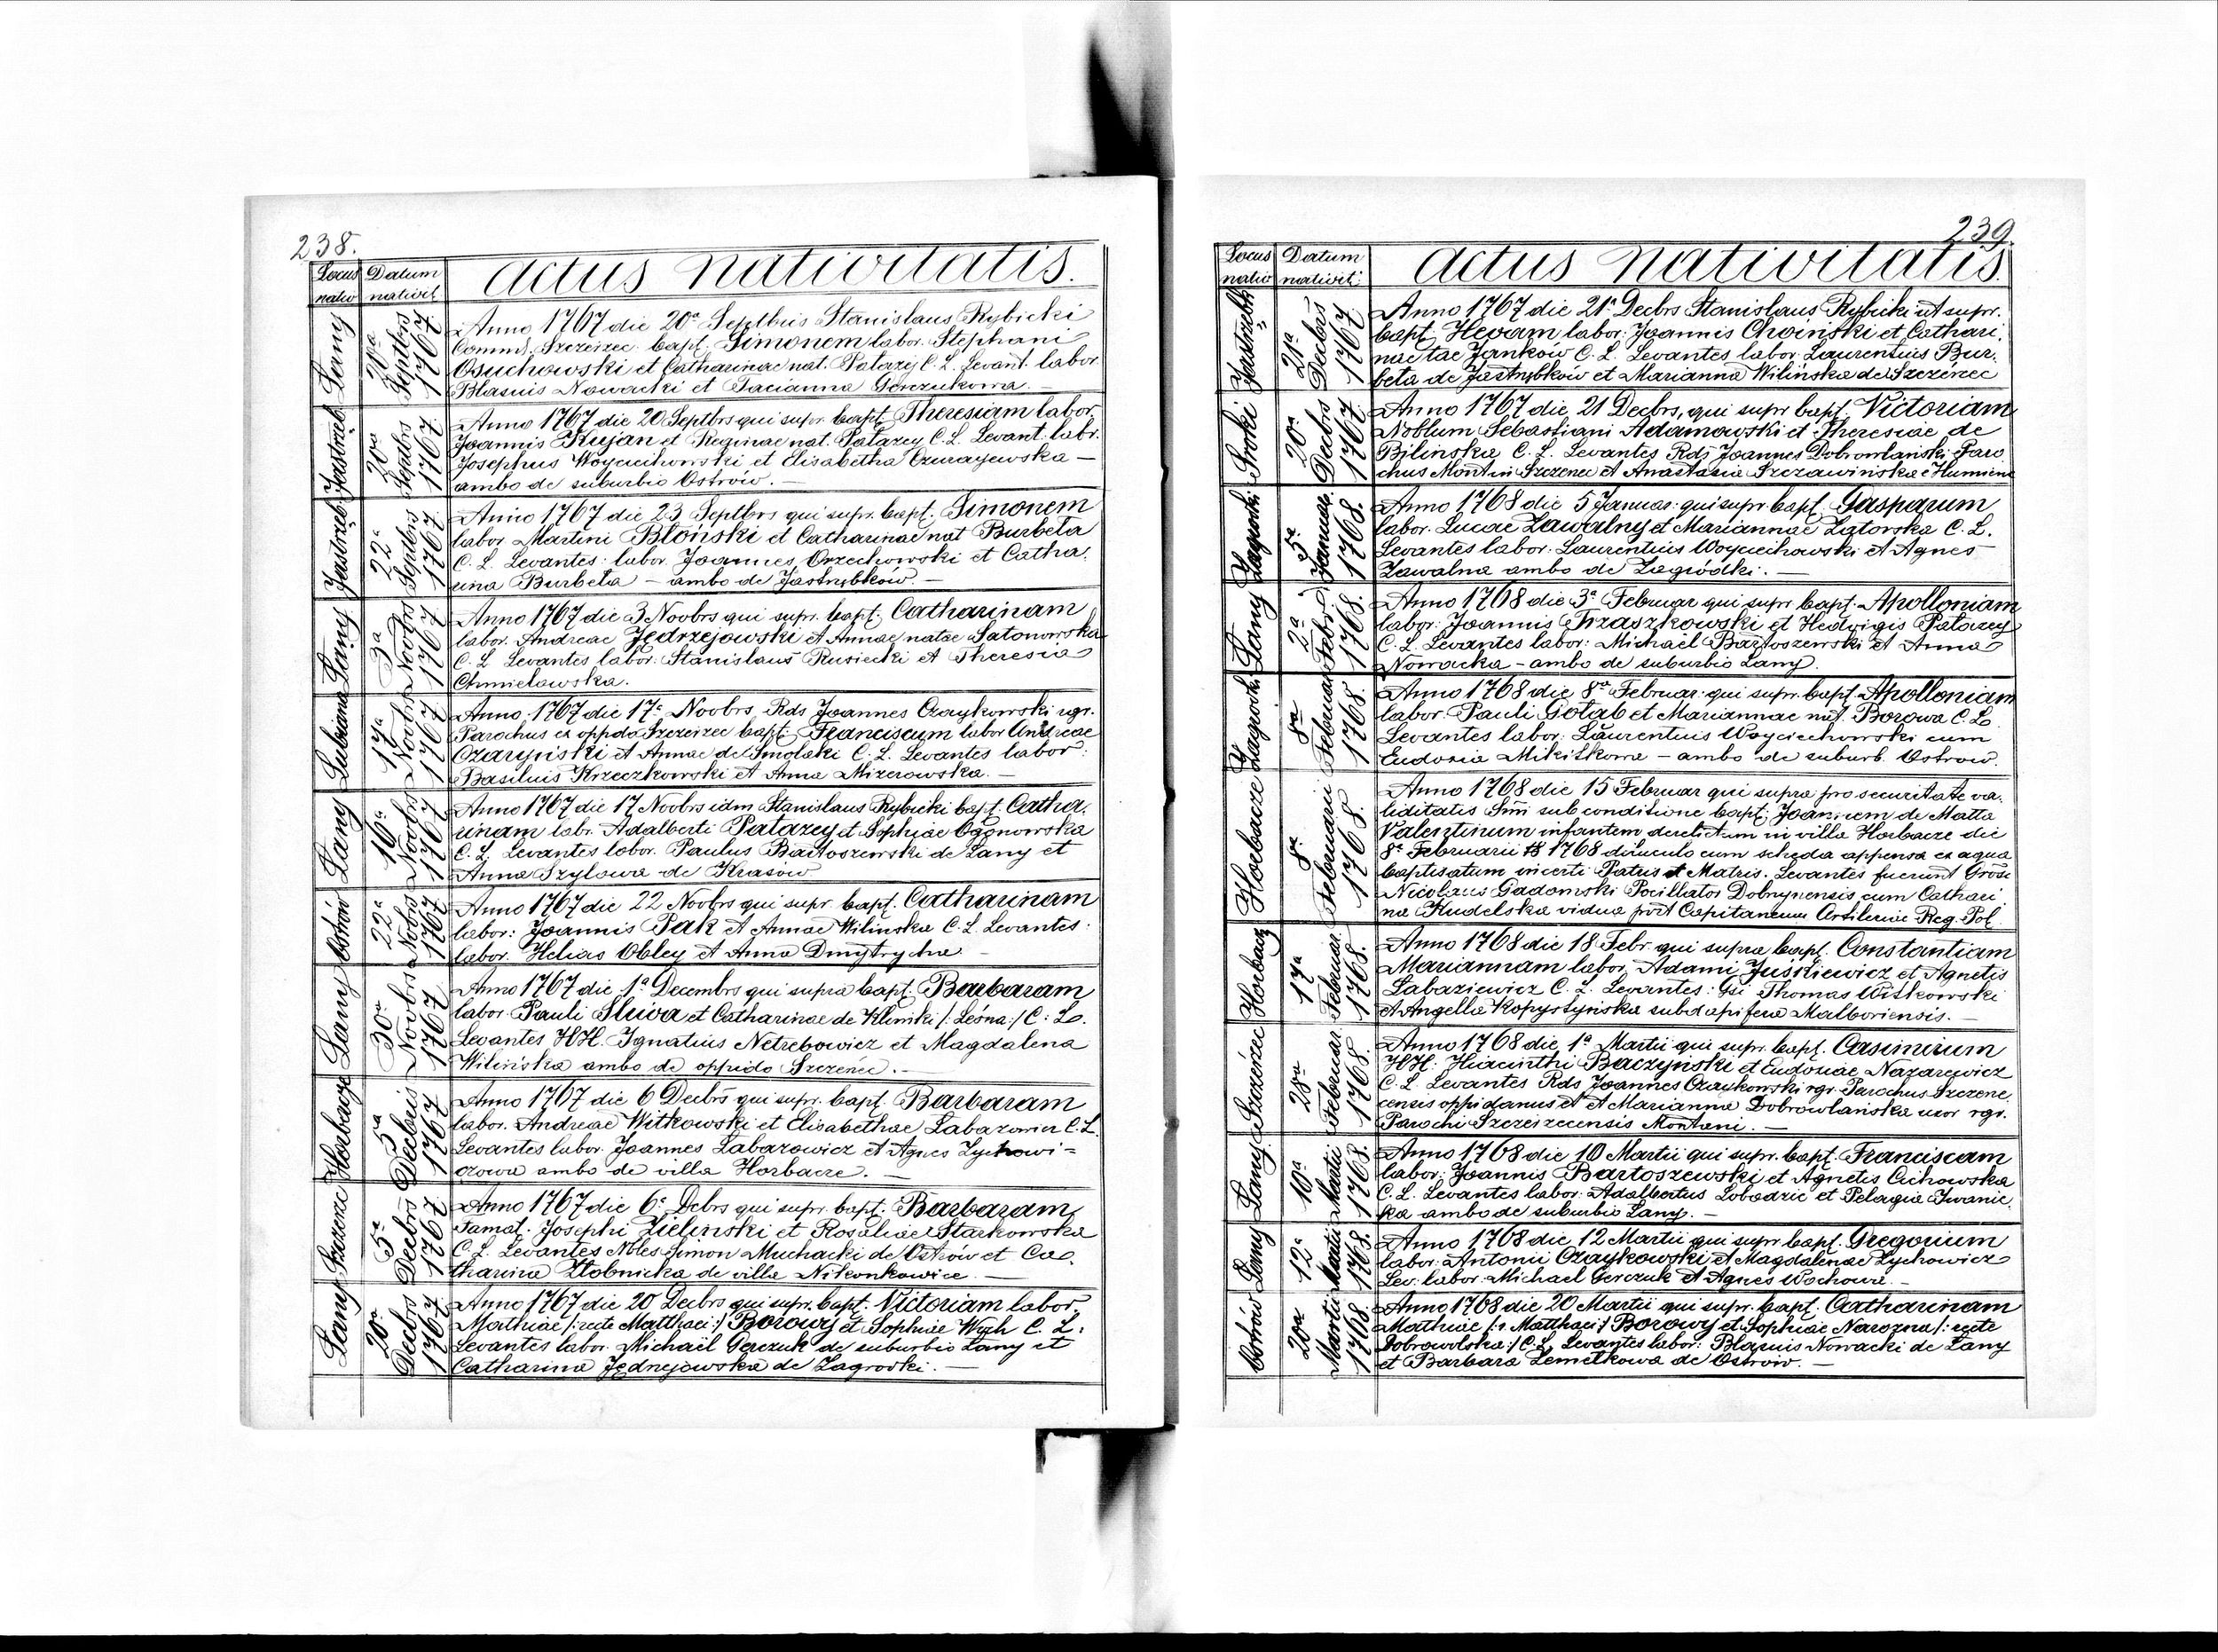 238.
Locus nativ
Datum nativit
Actus nativitatis.
Łany
20a Septbrs 1767
Anno 1767 die 20a Septbris Stanislaus Rybicki
Commd. Szczerzec bapt. Simonem labor. Stephani
Osuchowski et Catharinae nat. Patazy C. L. Levant. labor
Blasius Nowacki et Tacianna Gerczukowa —
Jastrzęb
20a Septbrs 1767
Anno 1767 die 20 Septbrs qui supr. bapt. Theresiam labor.
Joannis Kujan et Reginae nat. Patazey C. L. Levant. labr.
Josephus Woyciechowski et Elisabetha Czurayewska —
ambo de suburbio Ostrów. —
Jastrzęb
22a Septbrs 1767
Anno 1767 die 23 Septbrs qui supr. bapt. Simonem
labor Martini Błoński et Catharinae nat Burbela
C. L. Levantes: labor. Joannes Orzechowski et Catha.
rina Burbela — ambo de Jastrzębków. —
Łany
3a Novbrs 1767
Anno 1767 die 3 Novbrs qui supr. bapt. Catharinam
labor. Andreae Jędrzejowski et Annae natae Satonowska
C. L Levantes labor: Stanislaus Rusiecki et Theresia
Chmielowska.
Lubiana
17a Novbrs 1767
Anno 1767 die 17a Novbrs, Rds Joannes Czaykowski rgr.
Parochus ex oppido Szczerzec bapt: Franciscum labor Andreae
Czaryński et Annae de Smolaki C. L. Levantes labor:
Basilius Krzeczkowski et Anna Mizerowska. —
Łany
16a Novbrs 1767
Anno 1767 die 17 Novbrs idm Stanislaus Rybicki bapt. Catha.
rinam labr. Adalberti Patazey et Sophiae Ogonowska
C. L. Levantes labor. Paulus Bartoszewski de Łany et
Anna Szylowa de Krasow
Ostrów
22a Novbrs 1767
Anno 1767 die 22 Novbrs qui supr bapt. Catharinam
labor: Joannis Pak et Annae Wilinska C. L. Levantes:
labor. Helias Obley et Anna Dmytrycha —
Łany
30a Novbrs 1767
Anno 1767 die 1a Decembrs qui supra bapt. Barbaram
labor. Pauli Sliwa et Catharinae de Kliniki /: Leśna:/ C: L.
Levantes HH. Ignatius Netrebowicz et Magdalena
Wilińska ambo de oppido Szczerzec. —
Horbacze
5a Decbris 1767
Anno 1767 die 6 Decbrs qui supr. bapt. Barbaram
labor. Andreae Witkowski et Elisabethae Łabazowicz C. L.
Levantes labor. Joannes Łabazowicz et Agnes Zychowi=
czowa ambo de villa Horbacze. —
Szczerzec
5a Decbrs 1767
Anno 1767 die 6a Debrs qui supr. bapt. Barbaram
Famat: Josephi Zieliński et Rosaliae Starkowska
C. L. Levantes Nbles Simon Muchacki de Ostrów et Ca.
tharina Złobnicka de villa Nikonkowice —
Łany
20a Decbrs 1767
Anno 1767 die 20 Decbrs qui supr. bapt. Victoriam labor.
Mathiae /: recte Matthaei:/ Borowy et Sophiae Wych C. L:
Levantes labor. Michaël Gerczuk de suburbio Łany et
Catharina Jędrzejowska de Zagrodki. —
239.
Locus nativ
Datum nativit:
Actus nativitatis.
Jastrzębk
21a Decbrs 1767
Anno 1767 die 21a Decbrs Stanislaus Rybicki ut supr.
bapt. Hevam labor: Joannis Choiński et Cathari.
nae tae Janków C. L. Levantes labor. Laurentius Bur.
bela de Jastrzębków et Marianna Wilińska de Szczerzec
Sroki
20a Decbrs 1767
Anno 1767 die 21 Decbrs, qui supr bapt. Victoriam
Noblum Sebastiani Adamowski et Theresiae de
Bilinska C. L. Levantes Rds Joannes Dobrowlański Paro
chus Montin Szczerzec et Anastasia Szczawińska e Humieniec
Zagrodki
5a Januar. 1768.
Anno 1768 die 5 Januar: qui supr. bapt. Gasparum
labor. Lucae Zawalny et Mariannae Zatorska C. L.
Levantes labor: Laurentius Woyciechowski et Agnes
Zawalna ambo de Zagródki. —
Łany
2a Febr. 1768.
Anno 1768 die 3a Februar qui supr. bapt. Apolloniam
labor: Joannis Fraszkowski et Hedvigis Patazey
C. L. Levantes labor: Michaël Bartoszewski et Anna
Nowacka — ambo de suburbio Łany.
Zagrodki
8a Februar 1768.
Anno 1768 die 8va Februar: qui supr. bapt. Apolloniam
labor. Pauli Gołab et Mariannae nat. Borowa C. L.
Levantes labor: Laurentius Woyciechowski cum
Eudoxia Mikitkowa — ambo de suburb. Ostrow.
Horbacze
8a Februarii 1768.
Anno 1768 die 15 Februar qui supra pro securitate va.
liditatis Smi sub conditione bapt. Joannem de Matta
Valentinum infantem derelictum in villa Horbacze die
8a Februarii 18 1768 diluculo cum scheda appensa ex aqua
baptisatum incerti Patris et Matris. Levantes fuerunt Grosi
Nicolaus Gadomski Pocillator Dobrynensis cum Cathari:
na Kudelska vidua post Capitaneum Artileriae Reg. Pol.
Horbacz
17a Februar. 1768.
Anno 1768 die 18 Febr. qui supra bapt. Constantiam
Mariannam labor. Adami Juśkiewicz et Agnetis
Łabaziewicz C. L. Levantes: Gsi Thomas Witkowski
et Angella Kopystyńska subdapifera Malboriensis. —
Szczerzec
28a Februar 1768.
Anno 1768 die 1a Martii qui supr. bapt. Casimirum
HH. Hiacinthi Baczyński et Eudoxiae Nazarewicz
C. L. Levantes Rds Joannes Czaykowski rgr. Parochus Szczerze
censis oppidanus et et Marianna Dobrowlańska uxor rgr.
Parochi Szczerzecensis Montani. —
Łany
10a Martii 1768.
Anno 1768 die 10 Martii qui supr. bapt. Franciscam
labor: Joannis Bartoszewski et Agnetis Cichowska
C. L. Levantes labor: Adalbertus Łobodzic et Pelagia Iwanic.
ka ambo de suburbio Łany. —
Łany
12a Martii 1768.
Anno 1768 die 12 Martii qui supr. bapt. Gregorium
labor. Antonii Czaykowski et Magdalenae Zychowicz
Lev: labor. Michael Gerczuk et Agnes Wochowa. —
Ostrów
20a Martii 1768.
Anno 1768 die 20 Martii qui supr. bapt. Catharinam
Mathiae /: r. Matthaei:/ Borowy et Sophiae Narozna /: recte
Dobrowolska:/ C. L. Levantes labor: Blasius Nowacki de Łany
et Barbara Lemelkowa de Ostrow. —